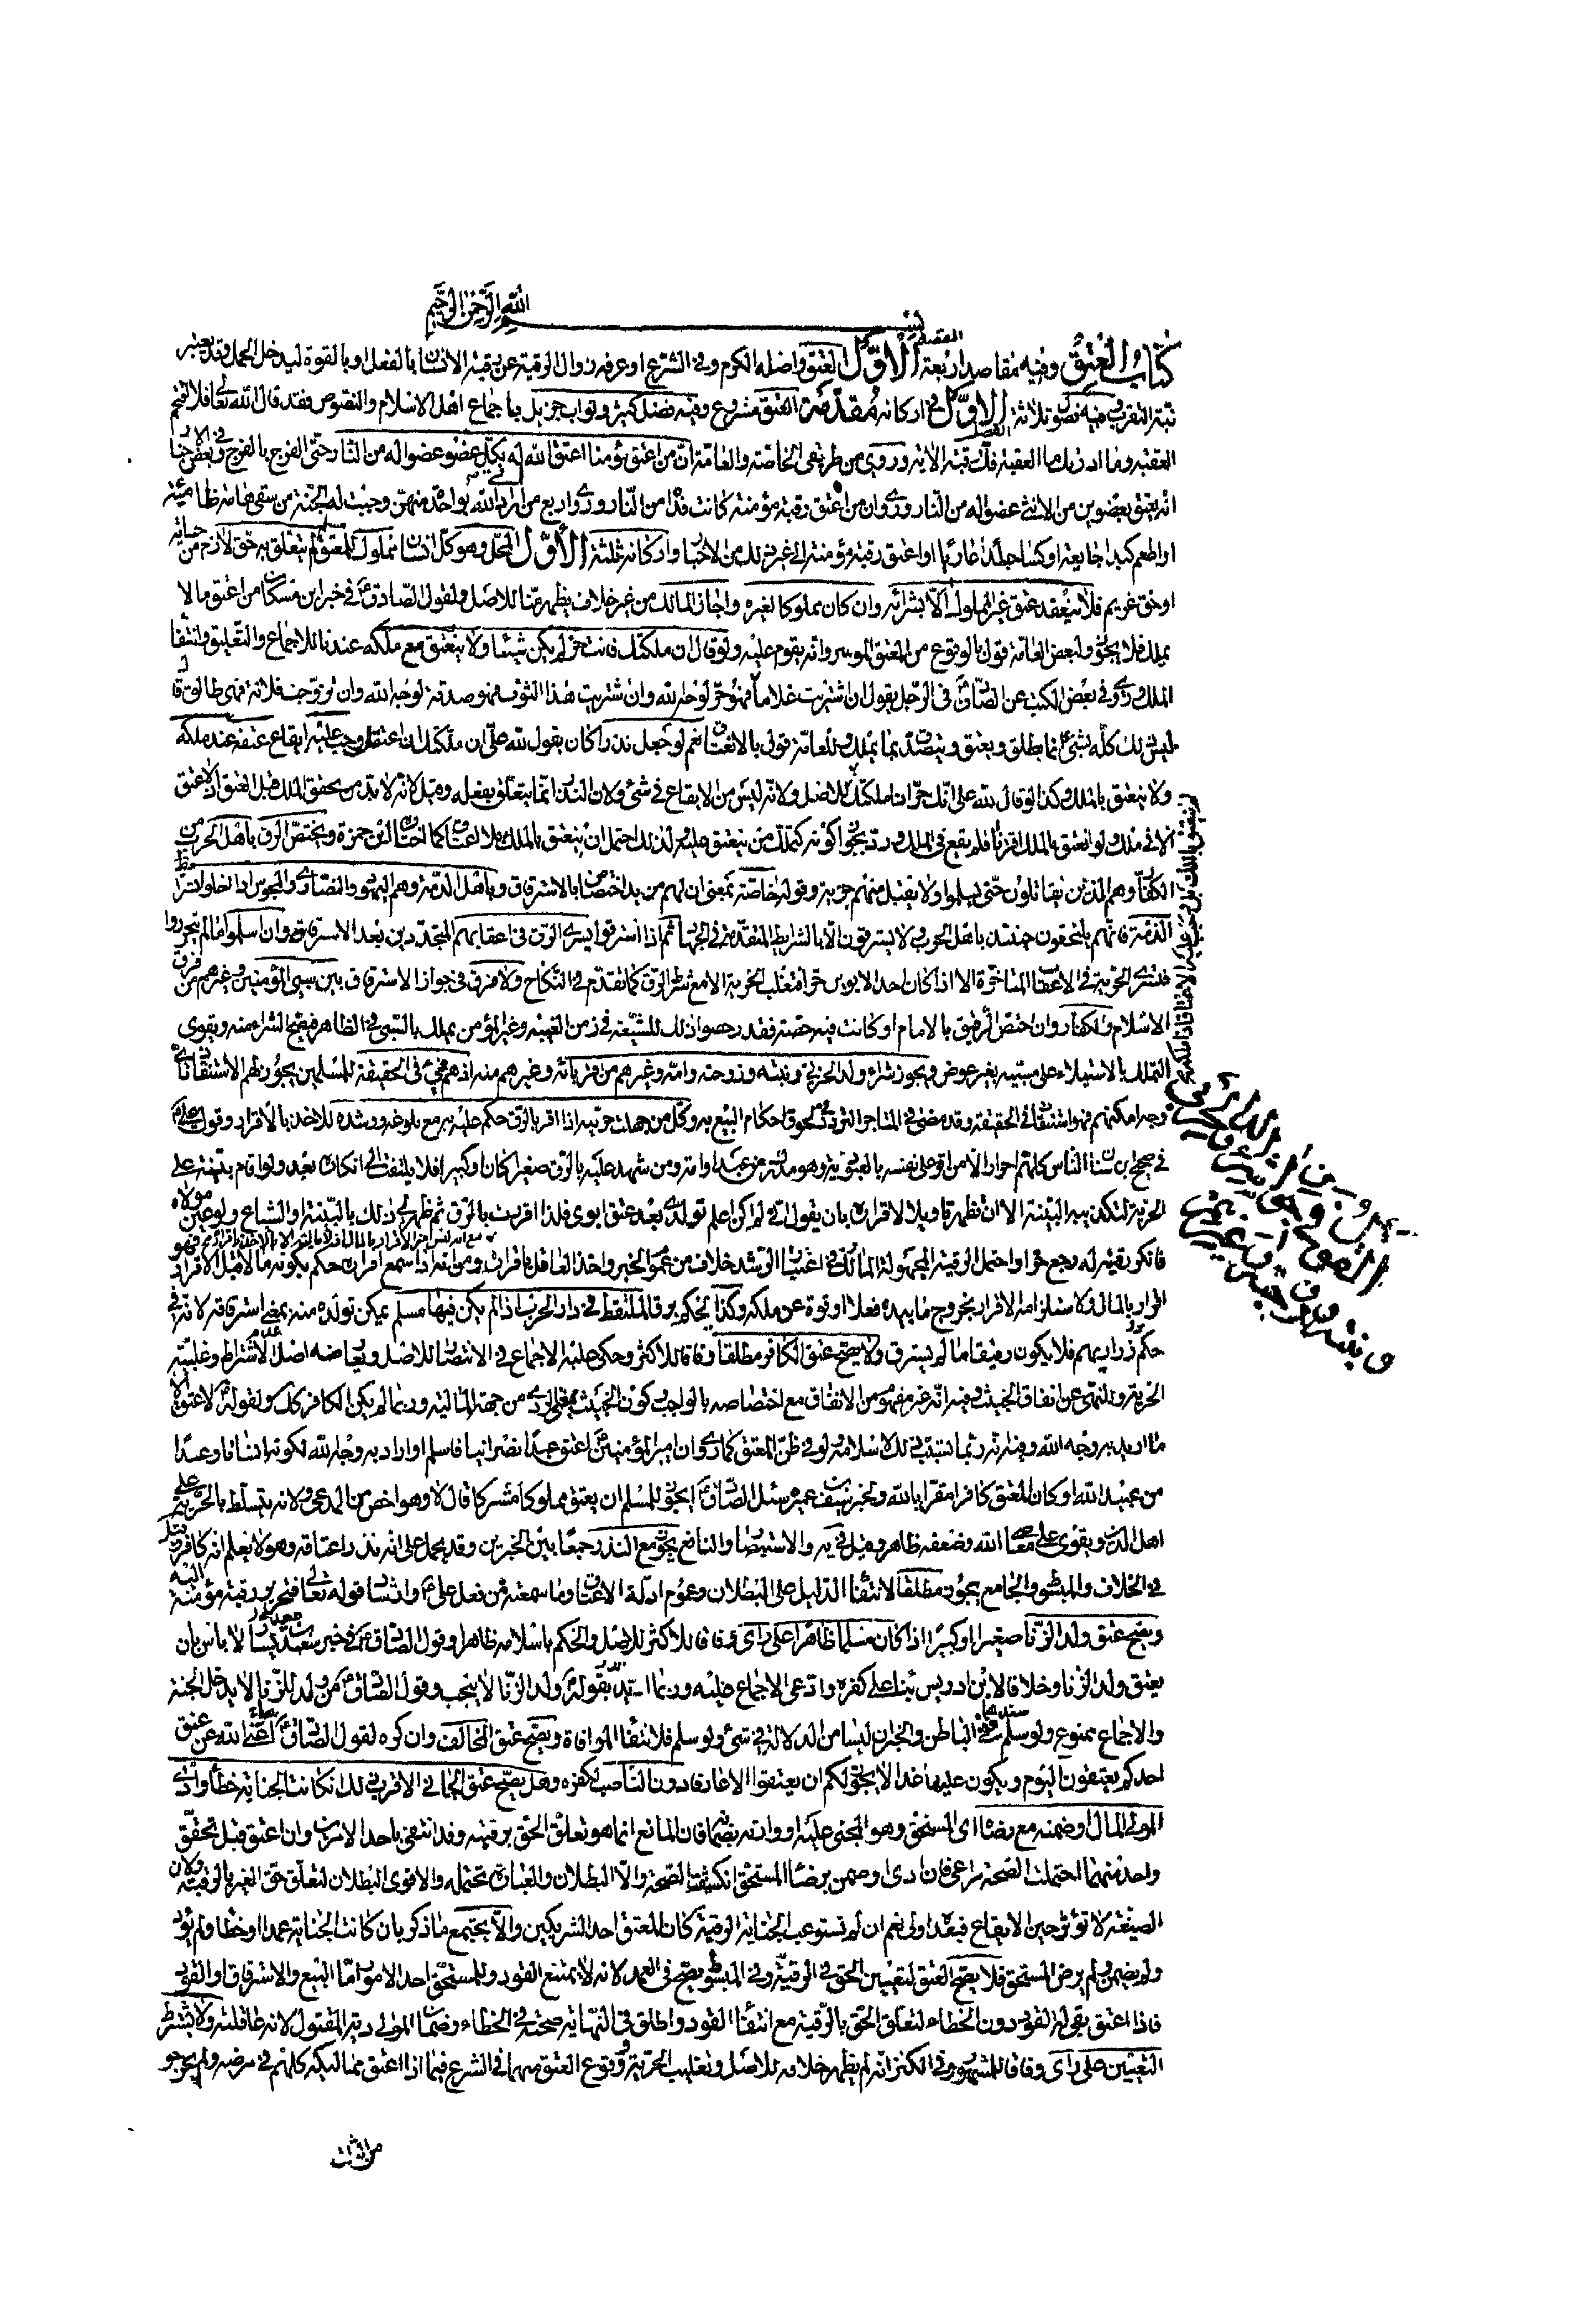 بسم الله الرحمن الرحيم
كتاب العتق وفيه مقاصد اربعة المقصد الاول العتق واصله الكرم وفى الشرع او عرفه زوال الرقية عن رقبة الانسان بالفعل او بالقوة ليدخل الحمل وقد يعتبر
نية التقرب وفيه فصول ثلاثة الفصل الاول فى اركانه مقدمة العتق مشروع وفيه فضل كثير وثواب جزيل باجماع اهل الاسلام والنصوص فقد قال الله تعالى فلا اقتحم
العقبة وما ادريك ما العقبة فك رقبة الاية وروى من طريقى الخاصة والعامة ان من اعتق مؤمنا اعتق الله له بكل عضو عضوا له من النار حتى الفرج بالفرج وفى بعض الاخبار
انه يعتق بعضوين من الانثى عضو له من النار وروى ان من اعتق رقبة مؤمنة كانت فداه من النار وروى اربع من اتى الله بواحدة منهن وجبت له الجنة من سقى هامة ظامئة
او اطعم كبدا جايعة او كسا جلدة عارية او اعتق رقبة مؤمنة الى غير ذلك من الاخبار واركانه ثلثة الاول المحل وهو كل انسان مملوك للمعتق لم يتعلق به حق لازم من جناية
او حق غريم فلا ينعقد عتق غير المملوك الا بشرائه وان كان مملوكا لغيره واجاز المالك من غير خلاف يظهر منا للاصل ولقول الصادق ع فى خبر ابن مسكان من اعتق ما لا
يملك فلا يجوز ولبعض العامة قول بالوقوع من المعتق الموسر وانه يقوم عليه ولو قال ان ملكتك فانت حر لم يكن شيئا ولا ينعتق مع ملكه عندنا للاجماع والتعليق وانتفاء
الملك وروى فى بعض الكتب عن الصادق ع فى الرجل يقول ان اشتريت غلاما فهو حر لوجه الله وان اشتريت هذا الثوب فهو صدقة لوجه الله وان تزوجت فلانة فهى طالق قال
ليس ذلك كله بشئ انما يطلق ويعتق ويتصدق بما يملك وللعامة قول بالانعتاق نعم لو جعل نذرا كان يقول لله على ان ملكتك ان اعتقك وجب عليه ايقاع عتقه عند ملكه
ولا ينعتق بالملك وكذا لو قال لله على انك حر ان ملكتك للاصل ولانه ليس من الايقاع فى شئ ولان النذر انما يتعلق بفعله وقيل لانه لا بد من تحقق الملك قبل العتق اذ لا عتق
الا فى ملك ولو انعتق بالملك اقترنا فلم يقع فى الملك ورد بجواز كونه كتملك من ينعتق عليه ولذلك احتمل ان ينعتق بالملك بلا اعتاق كما اختاره ابن حمزة ويختص الرق باهل الحرب من
الكفار وهم الذين يقاتلون حتى يسلموا ولا يقبل منهم جزية وقوله خاصة بمعنى ان لهم مزيد اختصاص بالاسترقاق وباهل الذمة وهم اليهود والنصارى والمجوس اذا اخلوا بشرائط
الذمة فانهم يلحقون حينئذ باهل الحرب ولا يسترقون الا بالشرايط المتقدمة فى الجهاد ثم اذا استرقوا يسرى الرق فى اعقابهم المتجددين بعد الاسترقاق وان اسلموا ما لم يتحرروا
فتسرى الحرية فى الاعقاب المتاخرة الا اذا كان احد الابوين حرا فتغلب الحرية الا مع شرط الرق كما تقدم فى النكاح ولا فرق فى جواز الاسترقاق بين سبى المؤمنين وغيرهم من فرق
الاسلام والكفار وان اختص الرقيق بالامام او كانت فيه حصته فقد رخصوا ذلك للشيعة فى زمن الغيبة وغير المؤمن يملك بالسبى فى الظاهر فيصح الشراء منه ويقوى
التملك بالاستيلاء على مسبيه بغير عوض ويجوز شراء ولد الحربى وبنته وزوجته وامه وغيرهم من اقربائه وغيرهم منه اذ هم فئ فى الحقيقة للمسلمين يجوز لهم الاستنقاذ باى
وجه امكنهم فهو استنقاذ فى الحقيقة وقد مضى فى المتاجر التردد فى لحوق احكام البيع به وكل من جهلت حريته اذا اقر بالرق حكم عليه به مع بلوغه ورشده للاخذ بالاقرار وقول على ع
فى صحيح ابن سنان الناس كلهم احرار الا من اقر على نفسه بالعبودية وهو مدرك من عبد او امة ومن شهد عليه بالرق صغيرا كان او كبيرا فلا يلتفت الى انكاره بعد ولو اقام بينة على
الحرية لتكذيبه البينة الا ان تظهر تاويلا لاقراره بان يقول انى لم اكن اعلم تولدى بعد عتق ابوى فلذا اقررت بالرق ثم ظهر لى ذلك بالبينة او الشياع ولو عين مولاه
فانكر رقيته له رجع حرا واحتمل الرقية المجهولة المالك وفى اعتبار الرشد خلاف من عموم الخبر واخذ العاقل باقراره ومن انه اذا سمع اقراره حكم بكونه مالا قبل الاقرار فهو
اقرار بالمال ولاستلزامه الاقرار بخروج ما بيده فعلا او قوة عن ملكه وكذا يحكم برق الملتقط فى دار الحرب اذا لم يكن فيها مسلم يمكن تولده منه بمعنى استرقاقه لانه فى
حكم ذراريهم فلا يكون رقيقا ما لم يسترق ولا يصح عتق الكافر مطلقا وفاقا للاكثر وحكى عليه الاجماع فى الانتصار للاصل ويعارضه اصل عدم الاشتراط وغلبته
الحرية وللنهى عن انفاق الخبيث وفيه انه غير مفهوم من الانفاق مع اختصاصه بالواجب وكون الخبيث بمعنى الردى من جهة المالية وربما لم يكن الكافر كك ولقوله ع لا عتق الا
ما اريد به وجه الله وفيه انه ربما تسبب ذلك لاسلامه ولو فى ظن المعتق كما روى ان امير المؤمنين ع اعتق عبدا نصرانيا فاسلم او اراد به وجه الله لكونه انسانا وعبدا
من عبيد الله او كان المعتق كافرا مقرا بالله ولخبر سيف بن عميرة سئل الصادق ع ايجوز للمسلم ان يعتق مملوكا مشركا قال لا وهو اخص من المدعى ولانه يتسلط بالحرية على
اهل الدين ويقوى على معاصى الله وضعفه ظاهر وقيل فى يه والاستبصار والنافع يجوز مع النذر جمعا بين الخبرين وقد يحمل على انه نذر اعتاقه وهو لا يعلم انه كافر وقيل
فى الخلاف والمبسوط والجامع يجوز مطلقا لانتفاء الدليل على البطلان وعموم ادلة الاعتاق وما سمعته من فعل على ع وارشاد قوله تعالى فتحرير رقبة مؤمنة اليه
ويصح عتق ولد الزنا صغيرا او كبيرا اذا كان مسلما ظاهرا على راى وفاقا للاكثر للاصل والحكم باسلامه ظاهرا وقول الصادق ع فى خبر سعيد بن يسار لا باس بان
يعتق ولد الزنا وخلافا لابن ادريس بناء على كفره وادعى الاجماع عليه وربما استدل بقوله ع ولد الزنا لا ينجب وقول الصادق ع من ولد للزنا لا يدخل الجنة
والاجماع ممنوع ولو سلم ففى الباطن والخبران ليسا من الدلالة فى شئ ولو سلم فلانتفاء الموافاة ويصح عتق المخالف وان كره لقول الصادق ع ما اغنى الله عن عتق
احدكم يعتقون اليوم ويكون علينا غدا لا يجوز لكم ان يعتقوا الا عارفا دون الناصب لكفره وهل يصح عتق الجانى الاقرب ذلك ان كانت الجناية خطأ وادى
المولى المال او ضمنه مع رضاه اى المستحق وهو المجنى عليه او وارثه بضمانه فان المانع انما هو تعلق الحق برقبته وقد انتفى باحد الامرين وان اعتق قبل تحقق
واحد منهما احتملت الصحة مراعى فان ادى او ضمن برضاء المستحق انكشفت الصحة والا البطلان والعبارة تحتمله والاقوى البطلان لتعلق حق الغير بالرقبة ولان
الصيغة لا تؤثر حين الايقاع فبعده اولى نعم ان لم تستوعب الجناية الرقبة كان المعتق احد الشريكين والا يجتمع ما ذكر بان كانت الجناية عمدا او خطأ ولم يؤد
ولم يضمن ولم يرض المستحق فلا يصح العتق لتعيين الحق فى الرقبة وفى المبسوط يصح فى العمد لانه لا يمتنع القود وللمستحق احد الامور اما البيع والاسترقاق او القود
فاذا اعتق بقى له القود دون الخطاء لتعلق الحق بالرقبة مع انتفاء القود واطلق فى النهاية صحته فى الخطاء وضمان المولى دية المقتول لانه عاقلته ولا يشترط
التعيين على راى وفاقا للمشهور وفى الكنز انه لم يظهر خلافه للاصل وتغليب الحرية ووقوع العتق مبهما فى الشرع فيما اذا اعتق مماليكه كلهم فى مرضه ولم يخرجوا